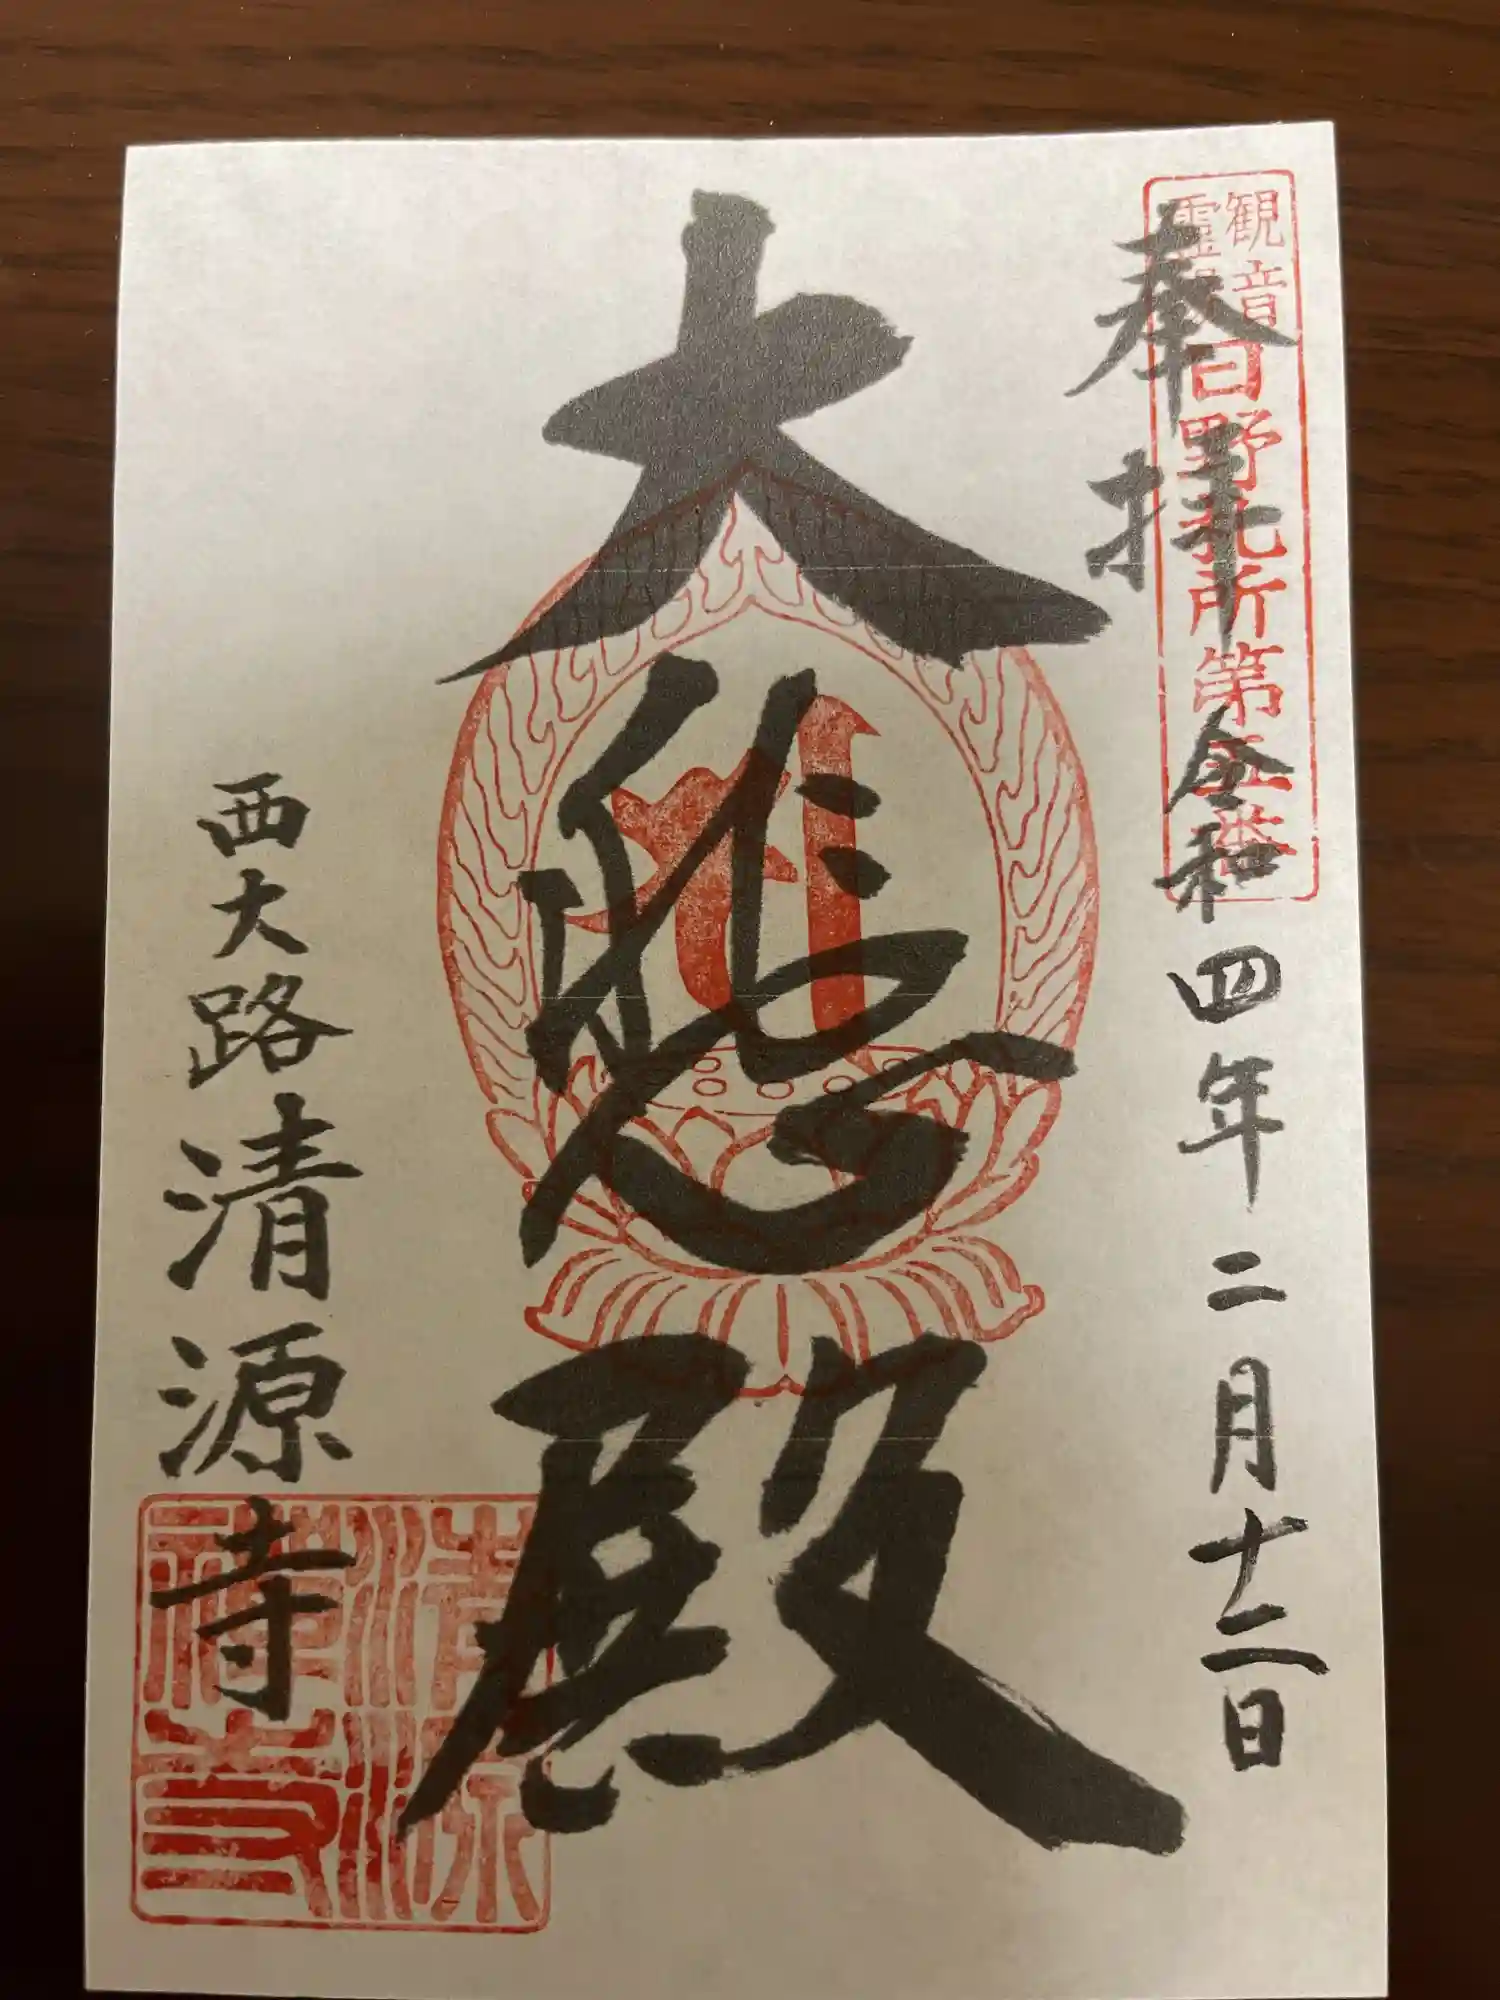 観音
霊場
日野札所第五番
奉拝
令和四年二月十二日
大悲殿
西大路清源寺
清源
禅寺